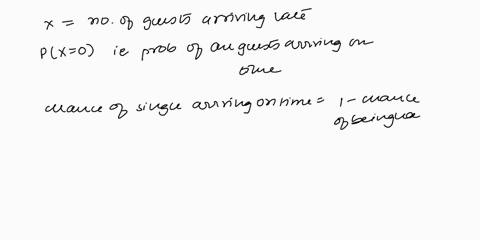 x = no. of guests arriving late
P(X=0) ie prob of all guests arriving on
time
chance of single arriving on time = 1 - chance
of being